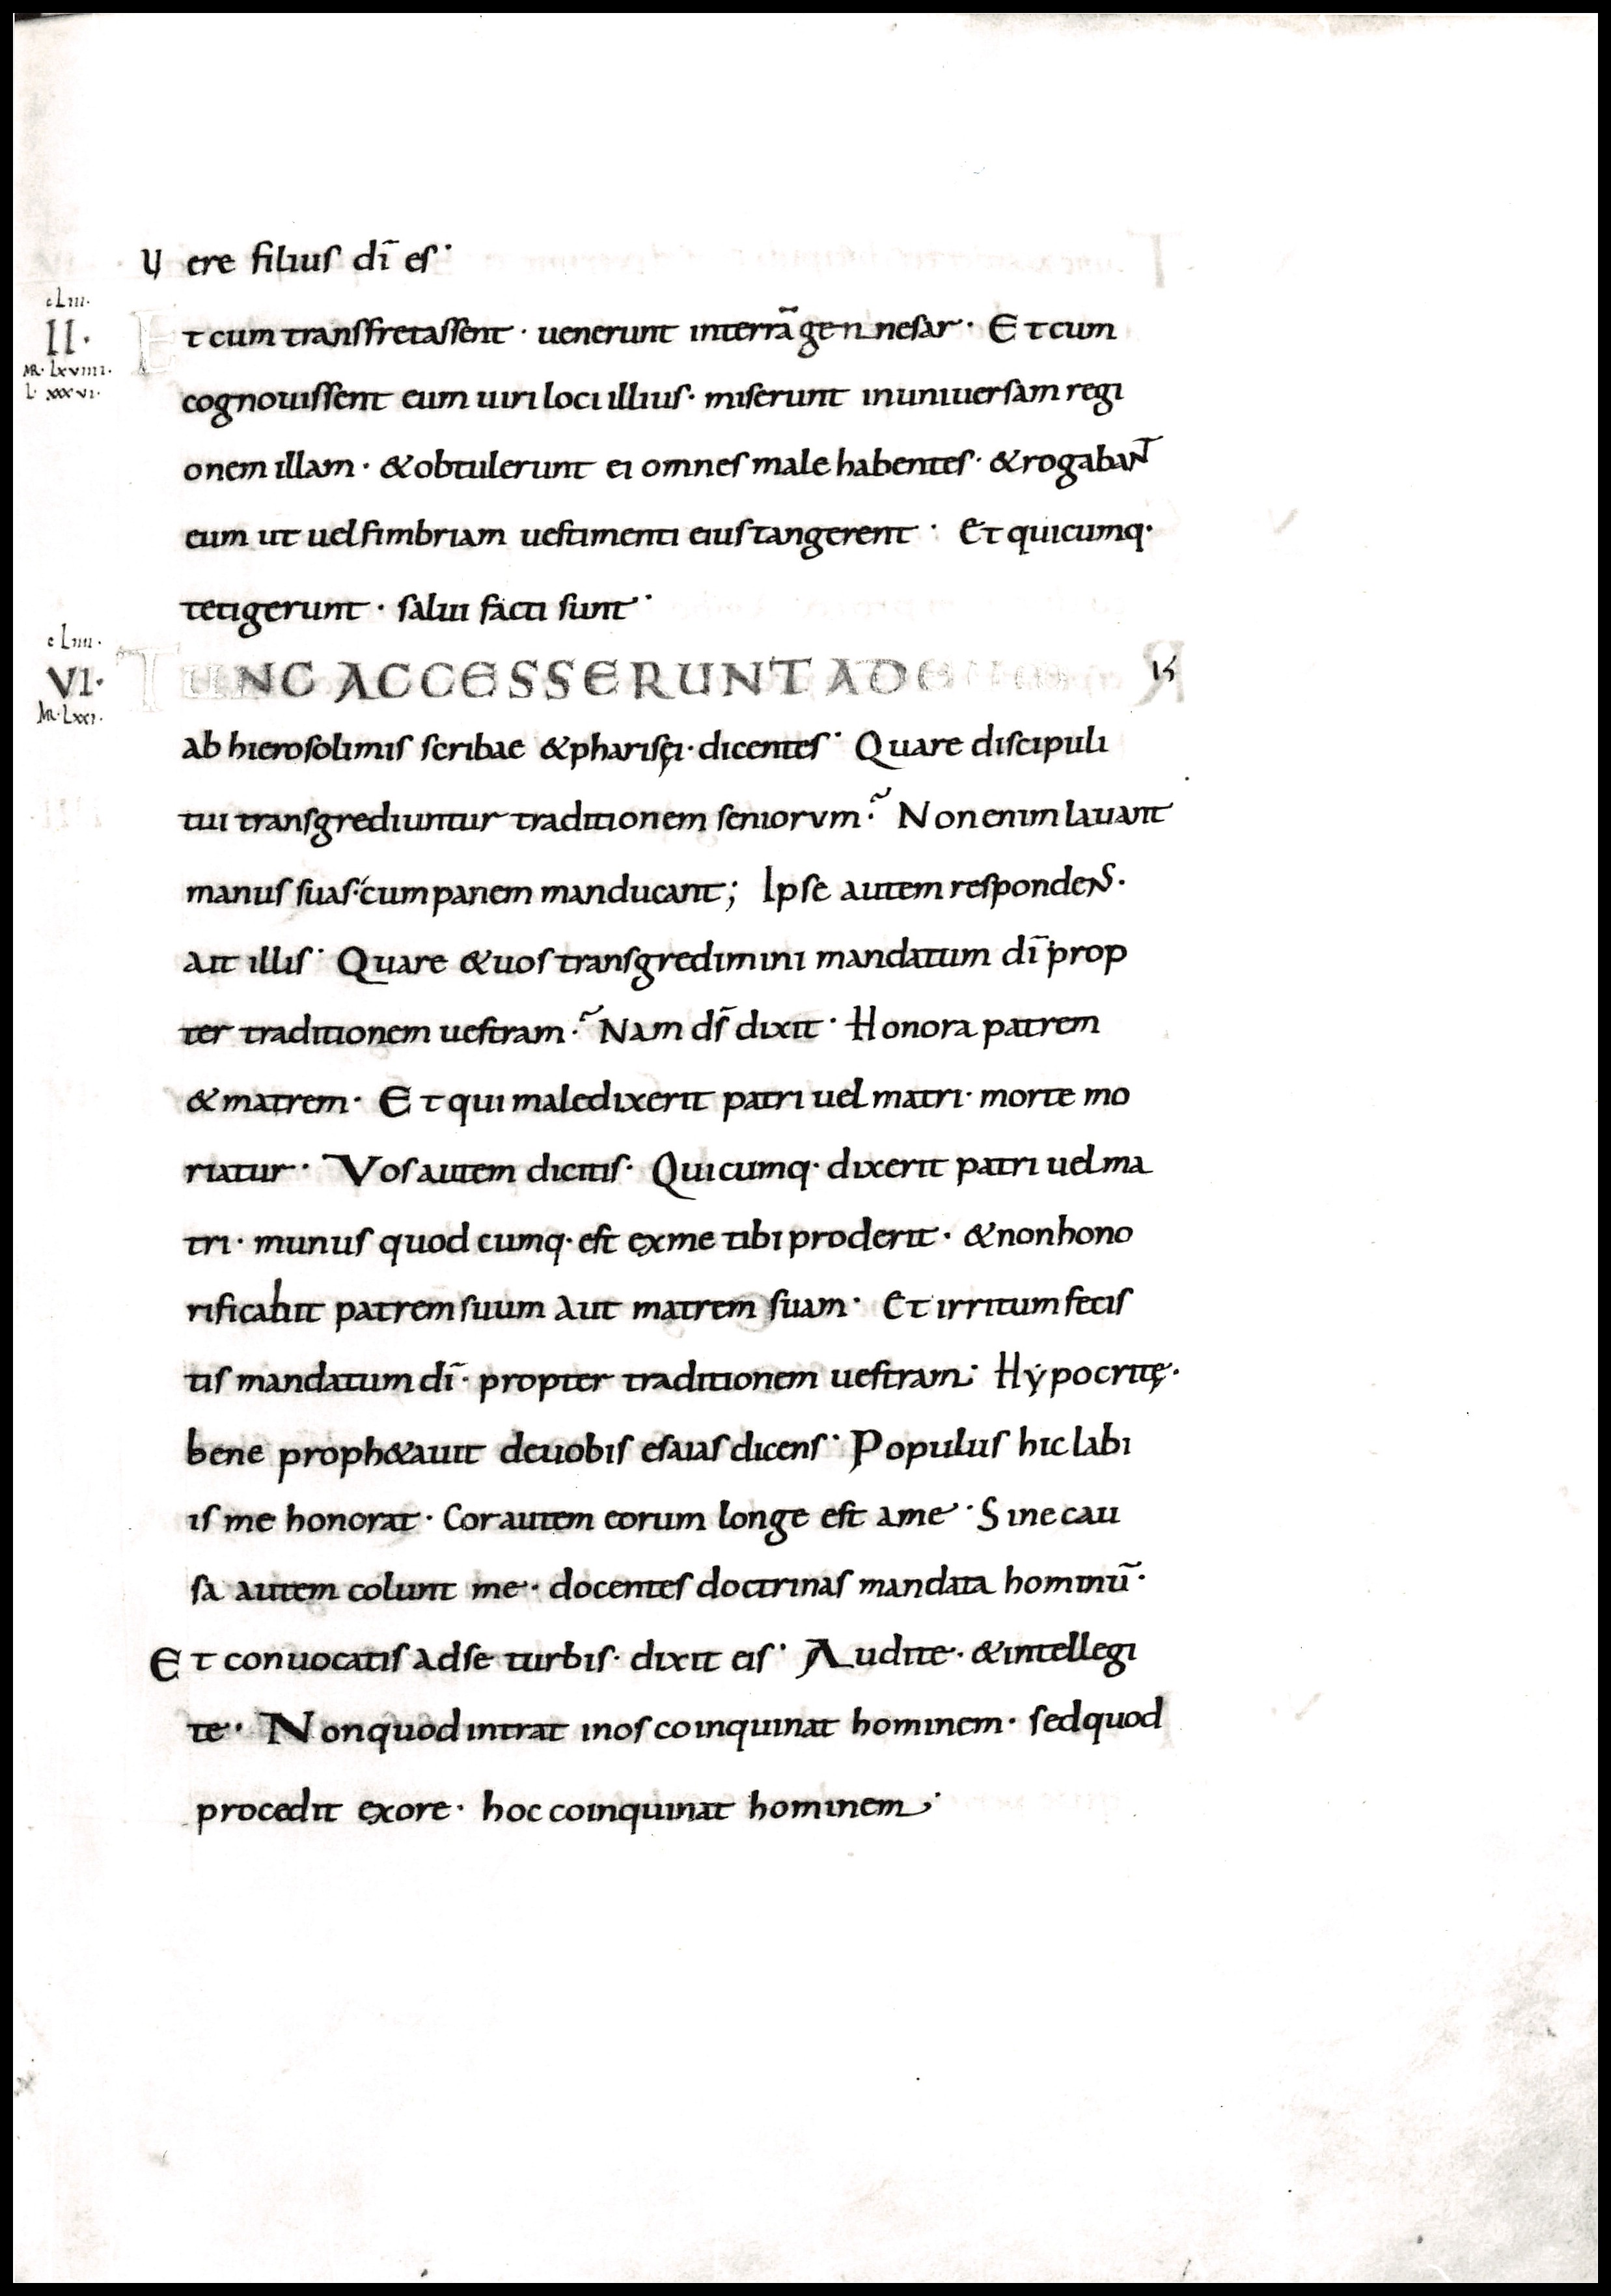 Vere filius dī es·
cLIII·
II·
MR· LXVIIII·
L· XXXVI·
Et cum transfretassent· uenerunt interrā gennesar· Et cum
cognouissent eum uiri loci illius· miserunt inuniuersam regi
onem illam· &obtulerunt ei omnes male habentes· &rogabant
eum ut uel fimbriam uestimenti eius tangerent· Et quicumq·
tetigerunt· salui facti sunt·
cLIIII·
VI·
MR· LXXI·
TUNC ACCESSERUNT AD
ab hierosolimis scribae &pharisęi· dicentes· Quare discipuli
tui transgrediuntur traditionem seniorvm? Non enim lauant
manus suas· cum panem manducant; Ipse autem respondens·
ait illis· Quare &uos transgredimini mandatum dī prop
ter traditionem uestram? Nam ds̄ dixit· Honora patrem
&matrem· Et qui maledixerit patri uel matri· morte mo
riatur· Vos autem dicitis· Quicumq· dixerit patri uel ma
tri· munus quod cumq· est exme tibi proderit· &nonhono
rificabit patrem suum aut matrem suam· Et irritum fecis
tis mandatum dī· propter traditionem uestram· Hẏpocritę·
bene proph&auit deuobis esaias dicens· Populus hic labi
is me honorat· Cor autem eorum longe est ame· Sine cau
sa autem colunt me· docentes doctrinas mandata hominū·
Et conuocatis adse turbis· dixit eis· Audite· &intellegi
te· Non quod intrat inos coinquinat hominem· sed quod
procedit exore· hoc coinquinat hominem·